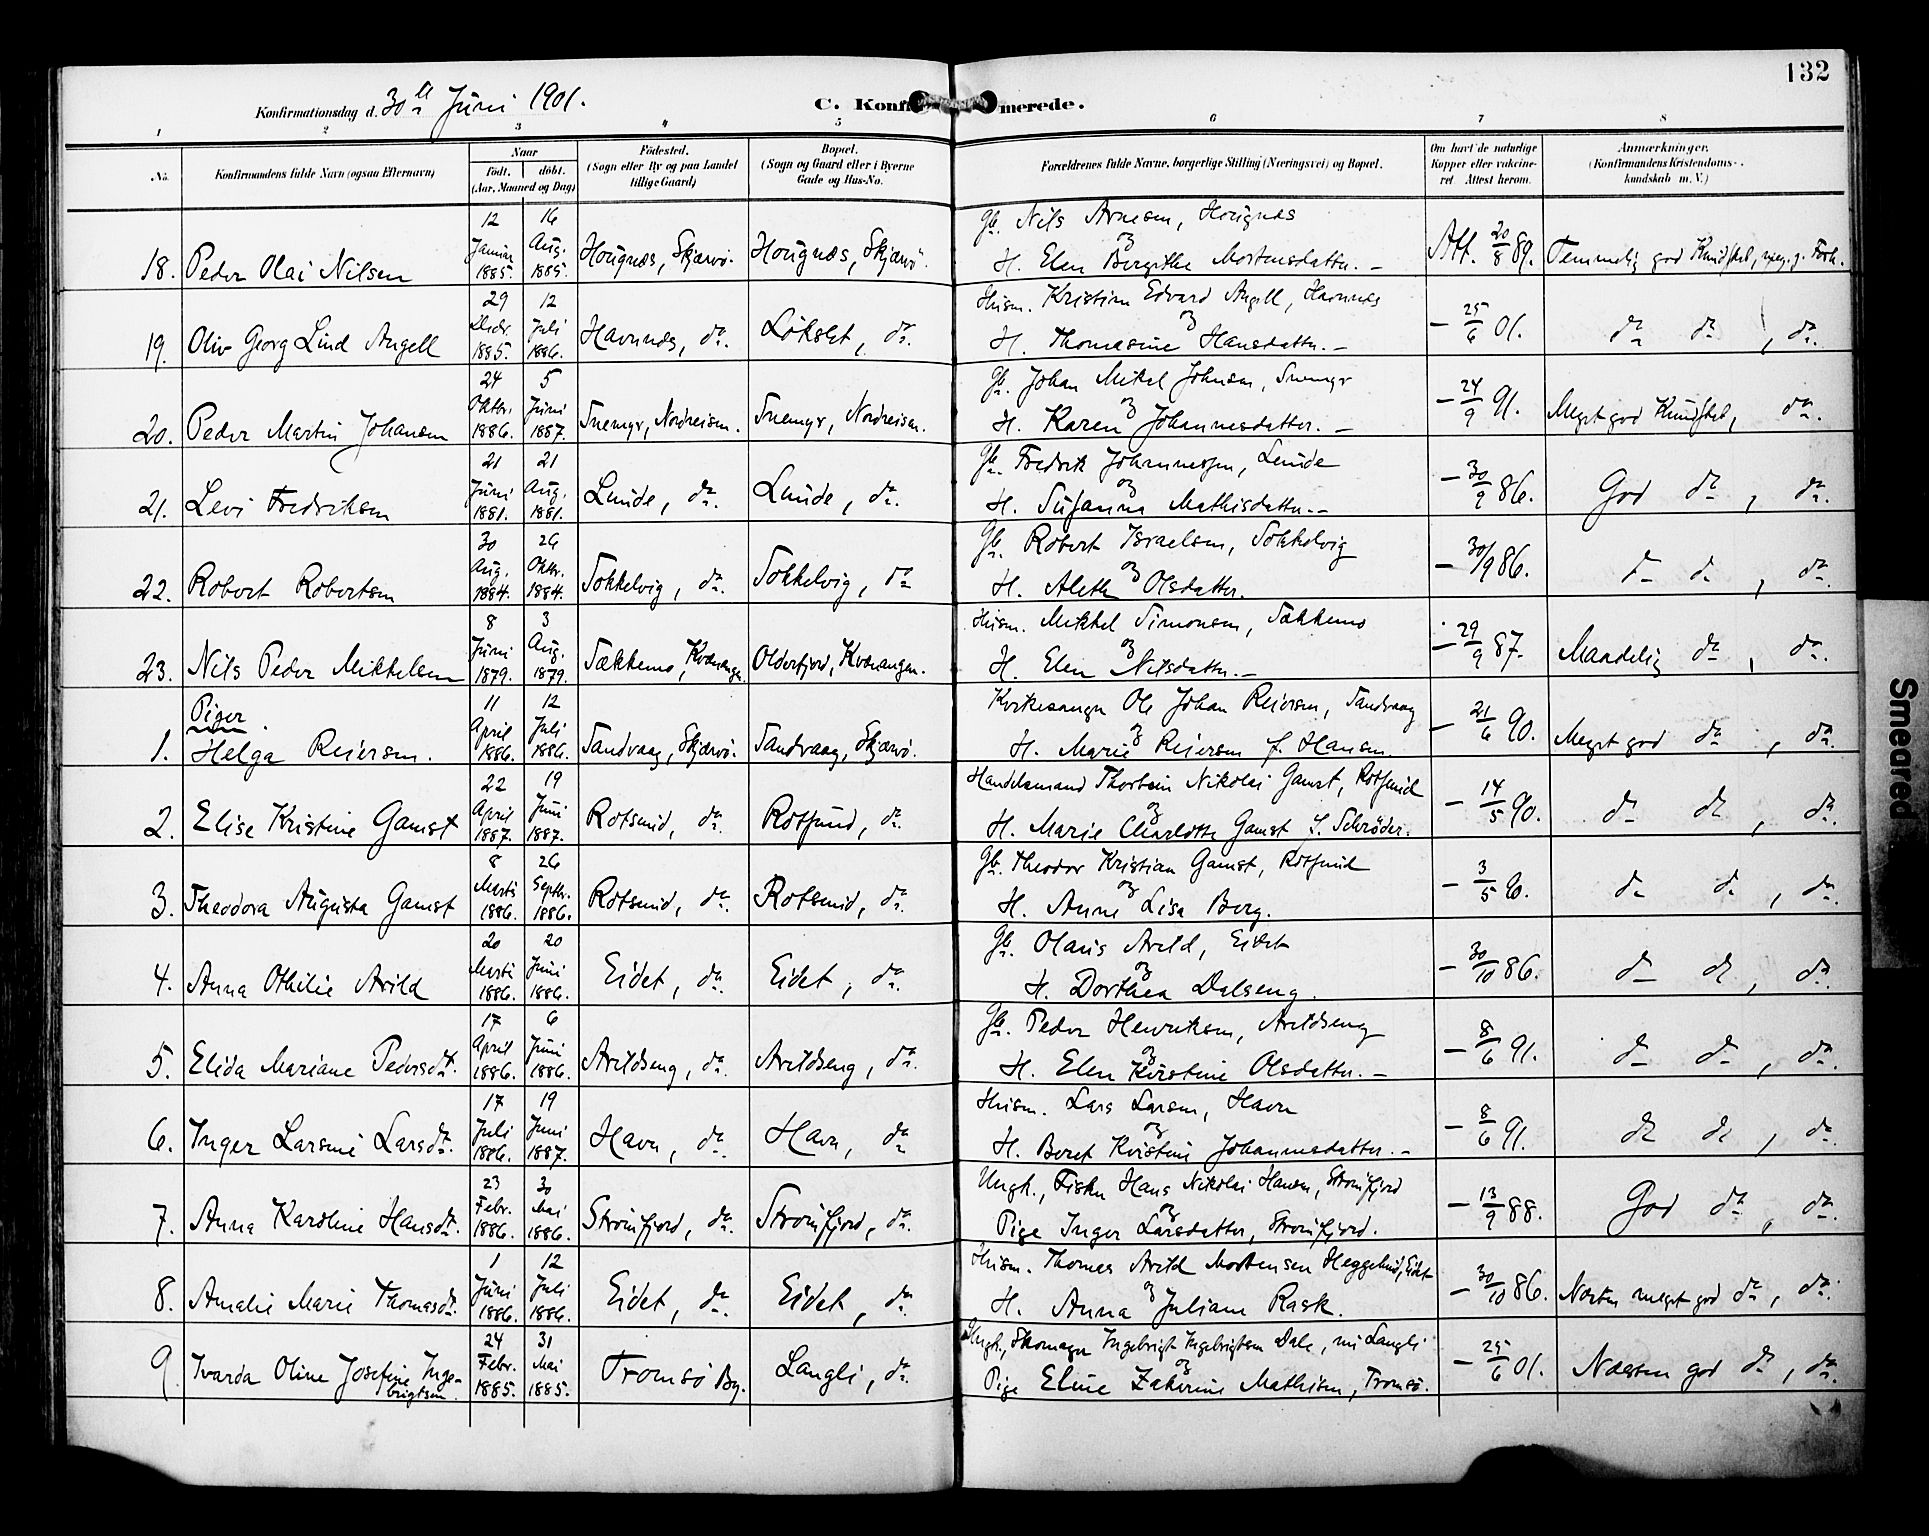 132
Konfirmationsdag d. 30te Juni 1901.
C. Konfirmerede.
1 2 3 4 5 6 7 8
No. Konfirmandens fulde Navn (ogsaa Efternavn) Naar født. døbt. (Aar, Maaned og Dag) Fødested. (Sogn eller By og paa Landet tillige Gaard) Bopæl. (Sogn og Gaard eller i Byerne Gade og Hus-No. Forældrenes fulde Navne, borgerlige Stilling (Næringsvei) og Bopæl. Om havt de naturlige Kopper eller vakcineret Attest herom. Anmærkninger. (Konfirmandens Kristendomskundskab m. V.)
18. Peder Olai Nilsen 12 Januar 1885. 16 Aug. 1885. Hougnæs, Skjærvø. Hougnæs, Skjærvø. Gb. Nils Arnesen, Hougnæs
og H. Elen Bergithe Mortensdatter. — Att. 20/8 89. Temmelig god Kundskab, meg. g. Forh.
19. Oliv Georg Lind Angell 29 Decbr. 1885. 12 Juli 1886. Havnnæs, do. Løkslet, do. Husm. Kristian Edvard Angell, Havnnæs
og H. Thomasine Hansdatter. — — 25/6 01. do do, do.
20. Peder Martin Johansen 24 Oktbr. 1886. 5 Juni 1887. Snemyr, Nordreisen. Snemyr, Nordreisen. Gb. Johan Mikal Johnsen, Snemyr
og H. Karen Johannesdatter. — — 24/9 91. Meget god Kundskab, do.
21. Levi Fredriksen 21 Juni 1881. 21 Aug. 1881. Lunde, do. Lunde, do. Gb. Fredrik Johannessen, Lunde
og H. Susanna Mathisdatter. — — 30/9 86. God do, do.
22. Robert Robertsen 30 Aug. 1884. 26 Oktbr. 1884. Sokkelvig, do. Sokkelvig, do Gb. Robert Israelsen, Sokkelvig
og H. Alethe Olsdatter. — 30/9 86. do do, do.
23. Nils Peder Mikkelsen 8 Juni 1879. 3 Aug. 1879. Sækkemo, Kvænangen. Olderfjord, Kvænangen. Husm. Mikkel Simonsen, Sækkemo
og H. Elen Nilsdatter. — — 29/9 87. Maadelig do, do.
Piger.
1. Helga Reiersen. 11 April 1886. 12 Juli 1886. Sandvaag, Skjærvø. Sandvaag, Skjærvø. Kirkesanger Ole Johan Reiersen, Sandvaag
og H. Marie Reiersen f. Hansen — 21/6 90. Meget god do, do.
2. Elise Kristine Gamst 22 April 1887. 19 Juni 1887. Rotsund, do. Rotsund, do. Handelsmand Thorstein Nikolai Gamst, Rotsund
og H. Marie Charlotte Gamst f. Schrøder. — 14/5 90. do do, do.
3. Theodora Augusta Gamst 8 Marts 1886. 26 Septbr. 1886. Rotsund, do. Rotsund, do. Gb. Theodor Kristian Gamst, Rotsund
og H. Anne Lisa Berg. — 3/5 90. do do, do.
4. Anna Othilie Arild 20 Marts 1886. 20 Juni 1886. Eidet, do. Eidet, do. Gb. Olaus Arild, Eidet
og H. Dorthea Dalseng. — 30/10 86. do do, do.
5. Elida Mariane Pedersdt. 17 April 1886. 6 Juni 1886. Arildseng, do. Arildseng, do. Gb. Peder Henriksen, Arildseng
og H. Elen Kirstine Olsdatter. — — 8/6 91. do do, do.
6. Inger Larsine Larsdt. 17 Juli 1886. 19 Juni 1887. Havn, do. Havn, do Husm. Lars Larsen, Havn
og H. Beret Kristine Johannesdatter. — — 8/6 91. do do, do.
7. Anna Karoline Hansdt. 23 Febr. 1886. 30 Mai 1886. Strømfjord, do. Strømfjord, do. Ungk., Fisker Hans Nikolai Hansen, Strømfjord
og Pige Inger Larsdatter, Strømfjord. — 13/9 88. God do, do.
8. Amalie Marie Thomasdt. 1 Juni 1886. 12 Juli 1886. Eidet, do. Eidet, do. Husm. Thomas Arild Mortensen Heggelund, Eidet
og H. Anna Juliane Rask. — 30/10 86. Næsten meget god do, do.
9. Ivarda Oline Josefine Ingebrigtsen 24 Febr. 1885. 31 Mai 1885. Tromsø By. Langli, do. Ungk., Skomager Ingebrigt Ingebrigtsen Dale, nu Langli
og Pige Eline Zakarine Mathisen, Tromsø. — 25/6 01. Næsten god do, do.
Smeared